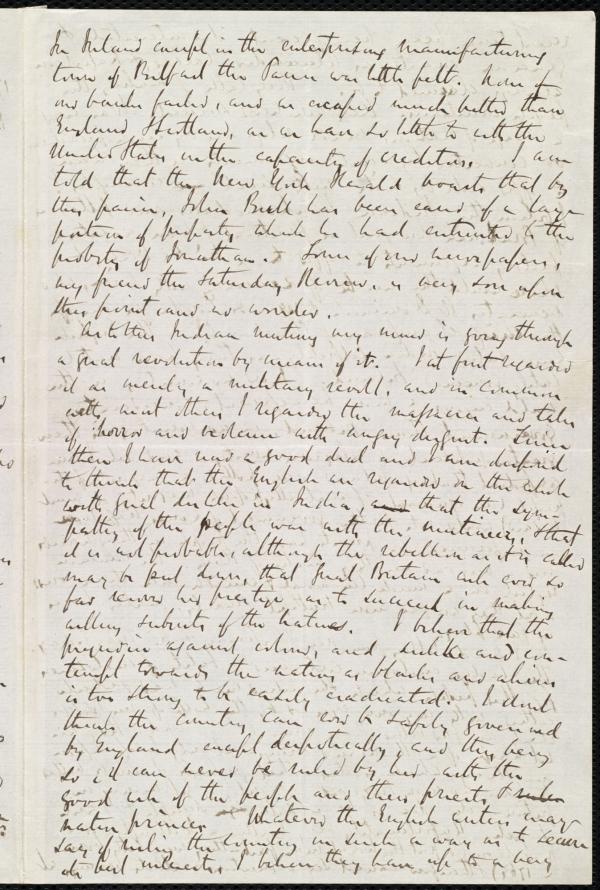 In Ireland except in the enterprising manufacturing
town of Belfast the Panic was little felt. None of
our banks failed, and we escaped much better than
England & Scotland, as we have so little to with the
United States in the capacity of creditors. I am
told that the New York Herald boasts that by
this panic, John Bull has been eased of a large
portion of property which he had entrusted to the
probity of Jonathan. Some of our newspapers,
my friend the Saturday Review, is very sore upon
this point and no wonder.
As to this Indian mutiny my mind is going through
a great revolution by means of it. I at first regarded
it as merely a military revolt, and in common
with most others I regarded the massacres and tales
of horror and violence with angry disgust. Since
then I have read a good deal and I am inclined
to think that the English are regarded on the whole
with great dislike in India, and that the sym-
pathy of the people was with the mutineers, & that
it is not probable, although the rebellion as it is called
may be put down, that Great Britain will ever so
far recover her prestige as to succeed in making
willing subjects of the natives. I believe that the
prejudice against colour, and dislike and con-
tempt towards the natives as blacks and aliens
is too strong to be easily eradicated. I don't
think the country can ever be safely governed
by England except despotically, and this being
so it can never be ruled by her with the
good will of the people and their priests &
native princes. Whatever the English writers may
say of ruling the country in such a way as to secure
its best interests, I believe they have up to a very